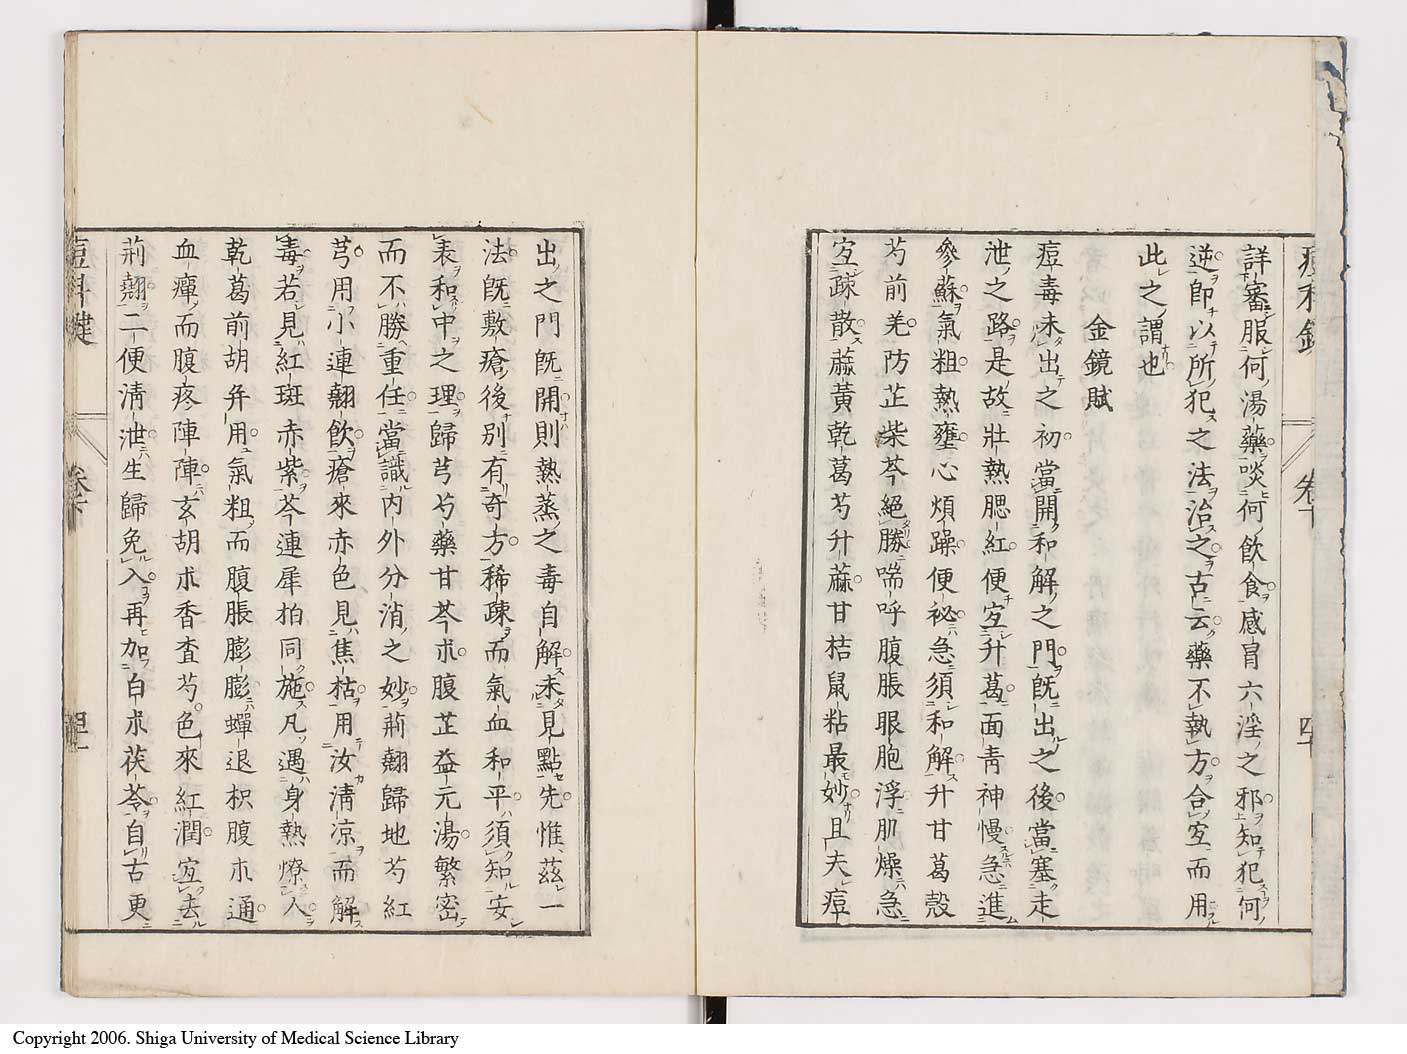 詳審服何湯藥啖何飲食感冒六淫之邪知犯何
逆卽以所犯之法治之古云藥不執方合宐而用
此之謂也
金鏡賦
痘毒未出之初當開和解之門旣出之後當塞走
泄之路是故壯熱腮紅便宐升葛面靑神慢急進
參蘇氣粗熱壅心煩躁便祕急須和解升甘葛殼
芍前羌防芷柴芩絕勝喘呼腹脹眼胞浮肌燥急
宐疎散蔴黃乾葛芍升蔴甘桔鼠粘最妙且夫痘
出之門旣開則熱蒸之毒自解未見點先惟茲一
法旣敷瘡後別有奇方稀疎而氣血和平須知安
表和中之理歸芎芍藥甘芩朮腹芷益元湯繁密
而不勝重任當識內外分消之妙荊翹歸地芍紅
芎用小連翹飮瘡來赤色見焦枯用汝淸凉而解
毒若見紅斑赤紫芩連犀柏同施凡遇身熱燎人
乾葛前胡幷用氣粗而腹脹膨膨蟬退枳腹朮通
血癉而腹疼陣陣玄胡朮香査芍色來紅潤宐去
荊翹二便淸泄生歸免入再加白朮茯苓自古更
四十
Copyright 2006. Shiga University of Medical Science Library